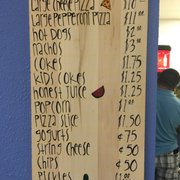 Large Cheese Pizza $10⁰⁰
Large Pepperoni Pizza $11⁰⁰
Hot Dogs $2⁰⁰
Nachos $3⁰⁰
Cokes $1.75
Kids Cokes $1.25
Honest Juice $1.25
Popcorn $1⁰⁰
Pizza Slice $1.50
Gogurts ¢75
String Cheese ¢50
Chips ¢50
Pickles